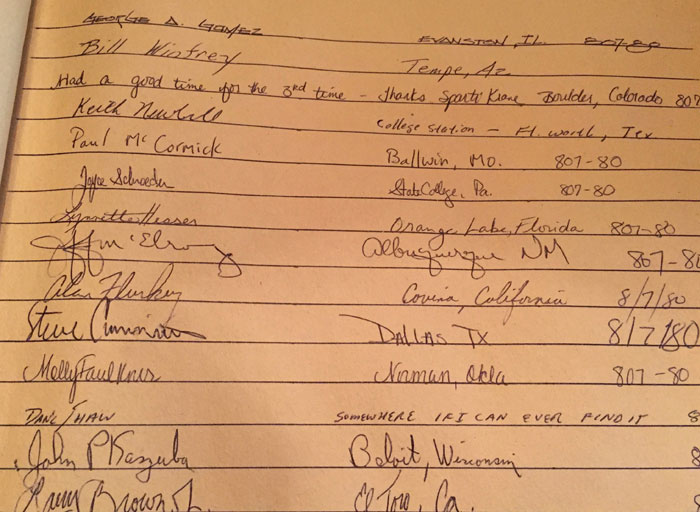 GEORGE A. GOMEZ EVANSTON, IL 807-80
Bill Winfrey Tempe, Az.
Had a good time for the 3rd time - Thanks Sparts' Krane Boulder, Colorado 807
Keith College Station - Ft. Worth, Tex
Paul McCormick Ballwin, Mo. 807-80
Joyce Schroeder State College, Pa. 807-80
Lynnette Heaser Orange Lake, Florida 807-80
Jeff McElroy Albuquerque NM 807-80
Alan Flurkey Covina, California 8/7/80
Steve DALLAS TX 8/7/80
Melly Faulkner Norman, Okla 807-80
DANE THAW SOMEWHERE IF I CAN EVER FIND IT 8
John P Kaszuba Beloit, Wisconsin 8
Larry Brown Jr. El Toro, Ca. 8